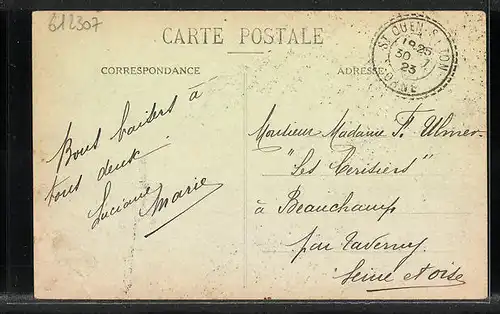 612307
CARTE POSTALE
CORRESPONDANCE
ADRESSE
ST OUEN S. ITON
18 25
30 - 7
23
ORNE
Bons baisers à
tous deux.
Luciane
Marie
Monsieur Madame F. Ulmer
"Les Cerisiers"
à Beauchamp
par Taverny
Seine et oise